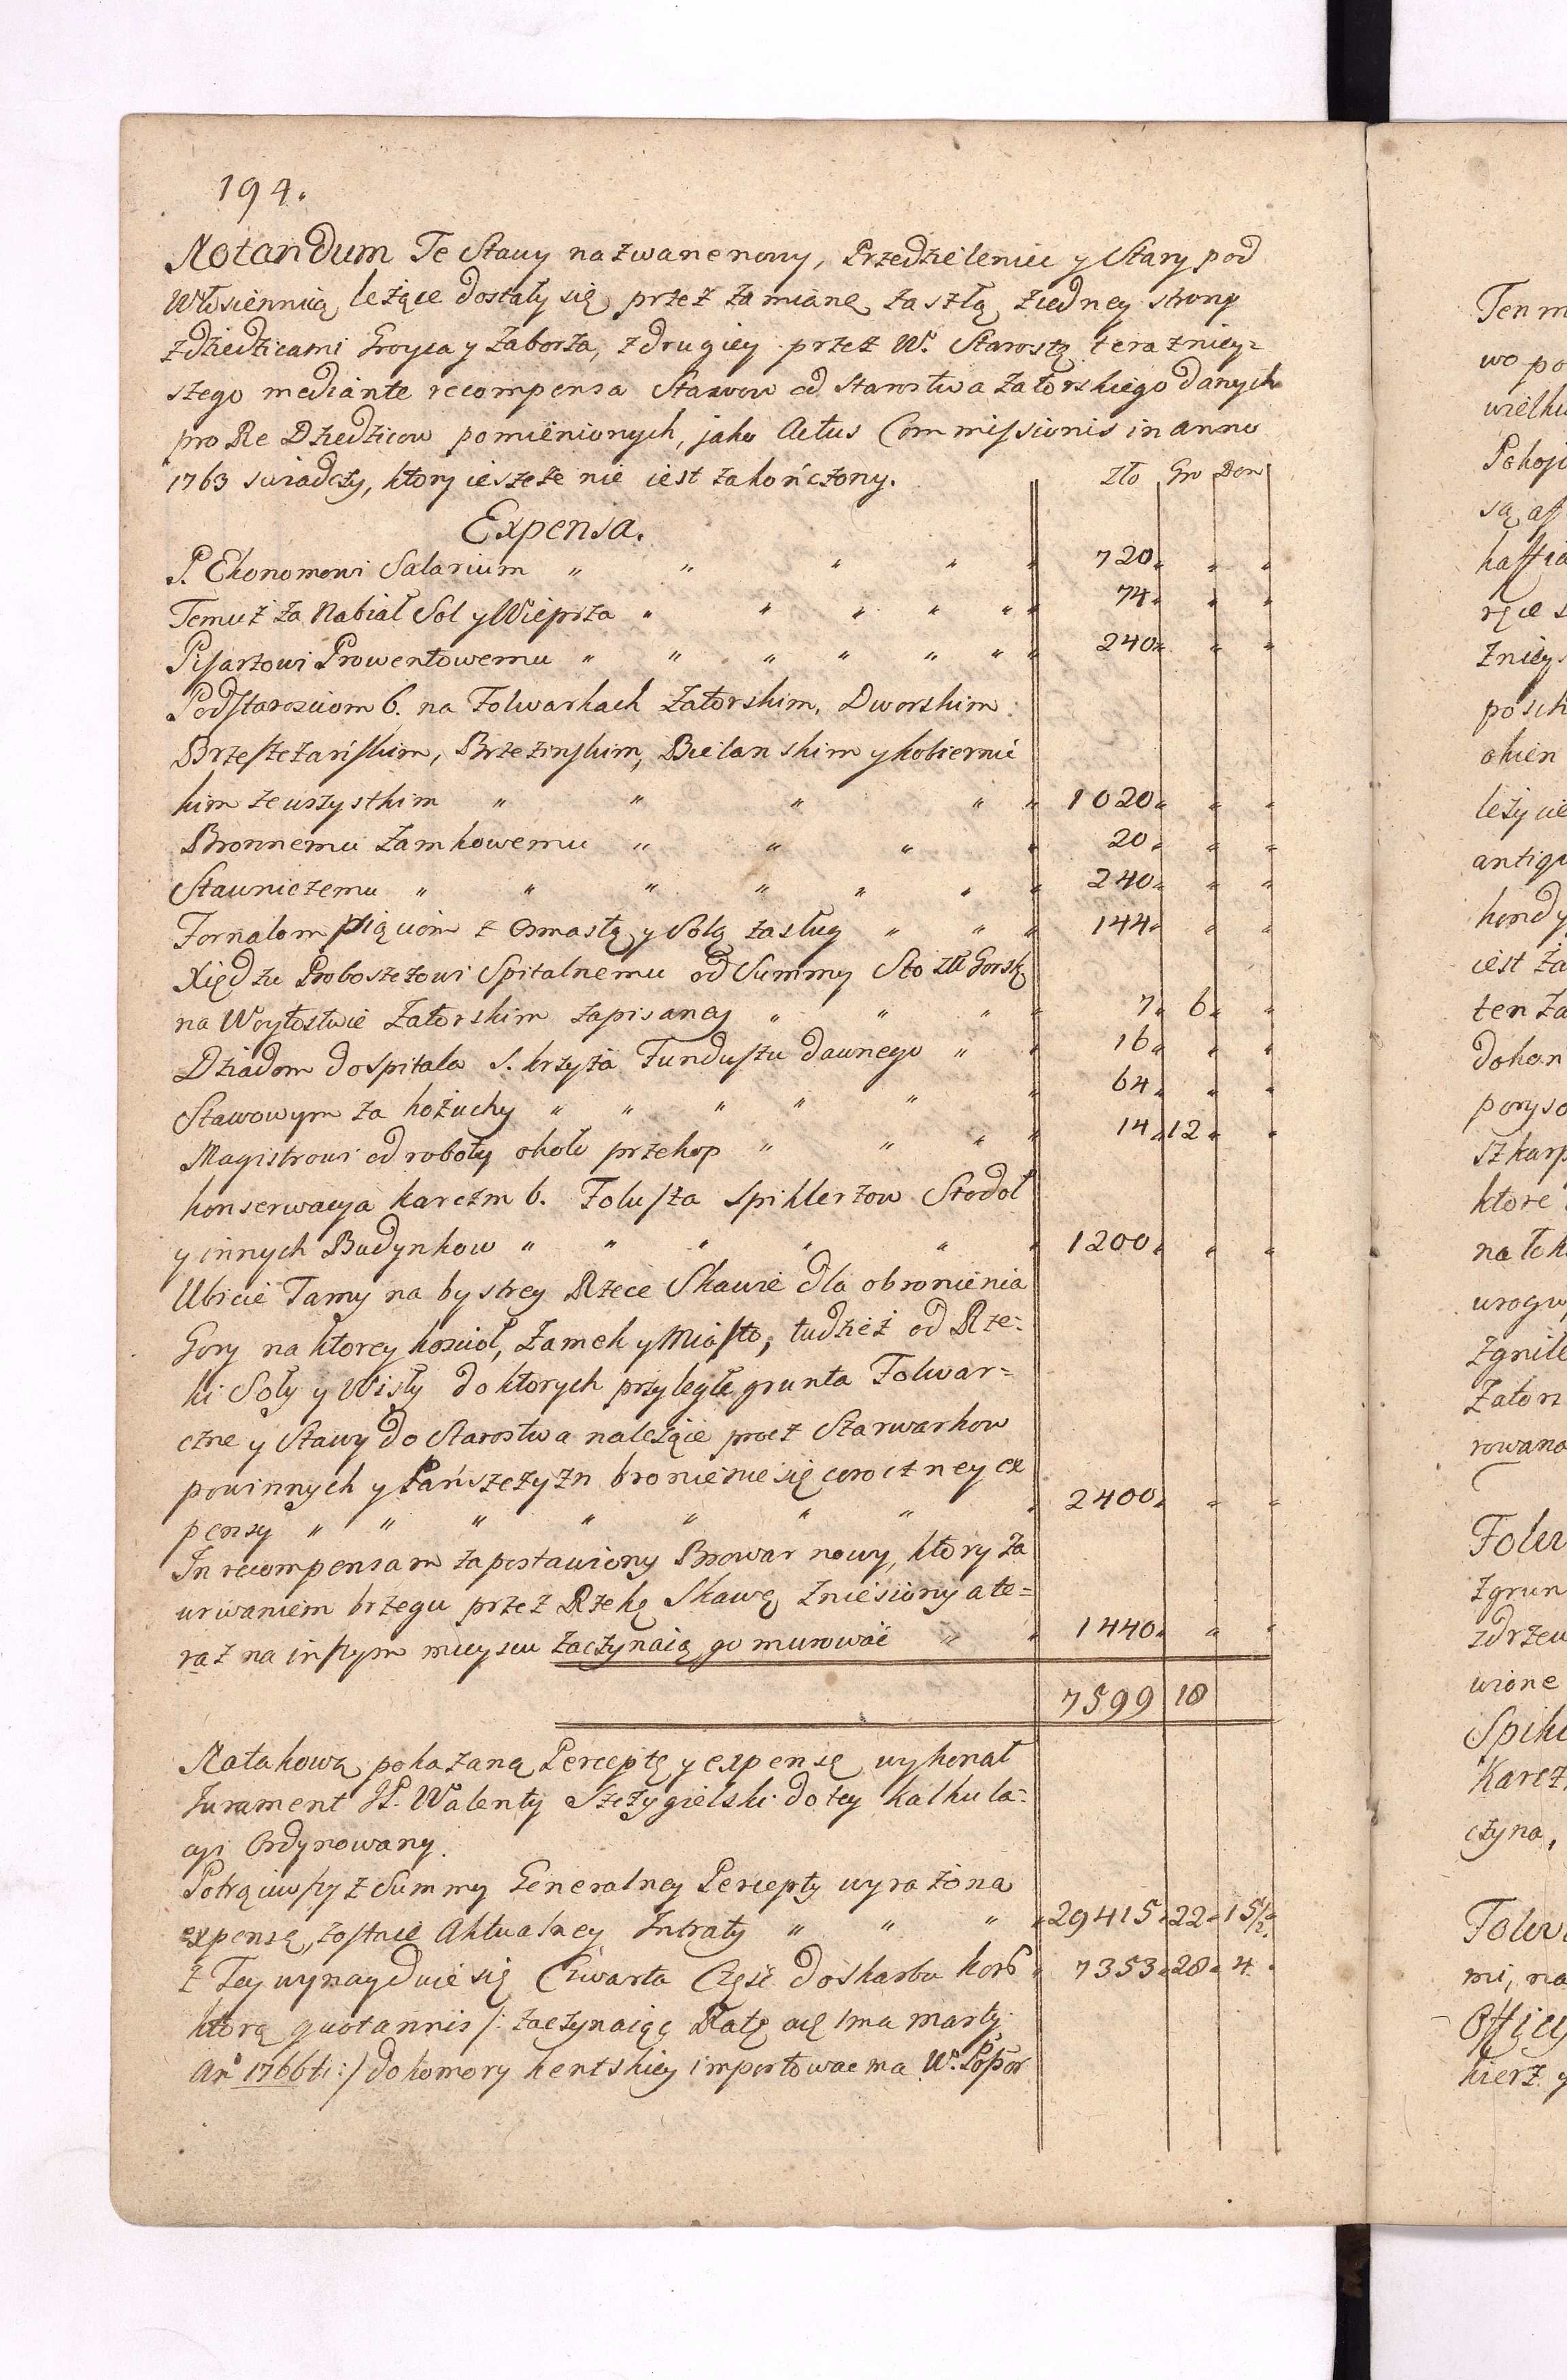 194.
Notandum Te Stawy nazwane nowy, Przedzieleniec y Stary pod
Włosiennicą leżące dostały się przez zamianę zaszłą z iedney strony
z dziedzicami Groyca y Zaborza, z drugiey przez W. Starostę terazniey=
szego mediante recompensa Stawow od Starostwa Zatorskiego danych
pro Re Dziedzicow pomienionych, jako Actus Commissionis in anno
1763 swiadczy, ktory ieszcze nie iest zakończony.
Zło Gro Den
Expensa.
P. Ekonomowi Salarium " " " " " 720 " "
Temuż za Nabiał Sol y Wieprza " " " " " 74 " "
Pisarzowi Prowentowemu " " " " " " 240 " "
Podstarosciom 6. na Folwarkach Zatorskim, Dworskim
Brzeszczańskim, Brzezinskim, Bielanskim y kobiernic
kim ze wszystkim " " " " " 1020 " "
Bronnemu Zamkowemu " " " " 20 " "
Stawniczemu " " " " " " " 240 " "
Fornalom piąciom z Omastą y Solą zasług " " " 144 " "
Xiędzu Proboszczowi Spitalnemu od Summy Sto Zł Gorsk
na Woytostwie Zatorskim zapisaney " " " " 7 6 "
Dziadom do Spitala S. krzyża Funduszu dawnego " " 16 " "
Stawowym za kożuchy " " " " " " 64 " "
Magistrowi od roboty około przekop " " " " 14 12 "
konserwacya karczm 6. Folusza Spiklerzow Stodoł
y innych Budynkow " " " " " " 1200 " "
Ubicie Tamy na bystrey Rzece Skawie dla obronienia
Gory na ktorey koscioł, Zamek y Miasto, tudzież od Rze=
ki Soły y Wisły do ktorych przyległe grunta Folwar=
czne y Stawy do Starostwa należące procz Szarwarkow
powinnych y Pańszczyzn bronienie się coroczney ex
pensy " " " " " " " " 2400 " "
In recompensam za postawiony Browar nowy, ktory za
urwaniem brzegu przez Rzekę Skawę zniesiony a te=
raz na inszym mieyscu zaczynaią go murować " " 1440 " "
7599 18
Na takową pokazaną Perceptę y expensę wykonał
Jurament JP. Walenty Szczygielski do tey kalkula=
cyi Ordynowany.
Potrąciwszy z Summy Generalney Percepty wyrażona
expensę, zostaie Aktualney Intraty " " " " 29415 22 15 1/2
z Tey wynayduie się Czwarta Częsc do skarbu kor " 7353 28 4
ktorą quotannis /: zaczynaiąc Ratę a 1ma marty
Anº 1766ti :/ do komory kentskiey importowac ma W. Possor